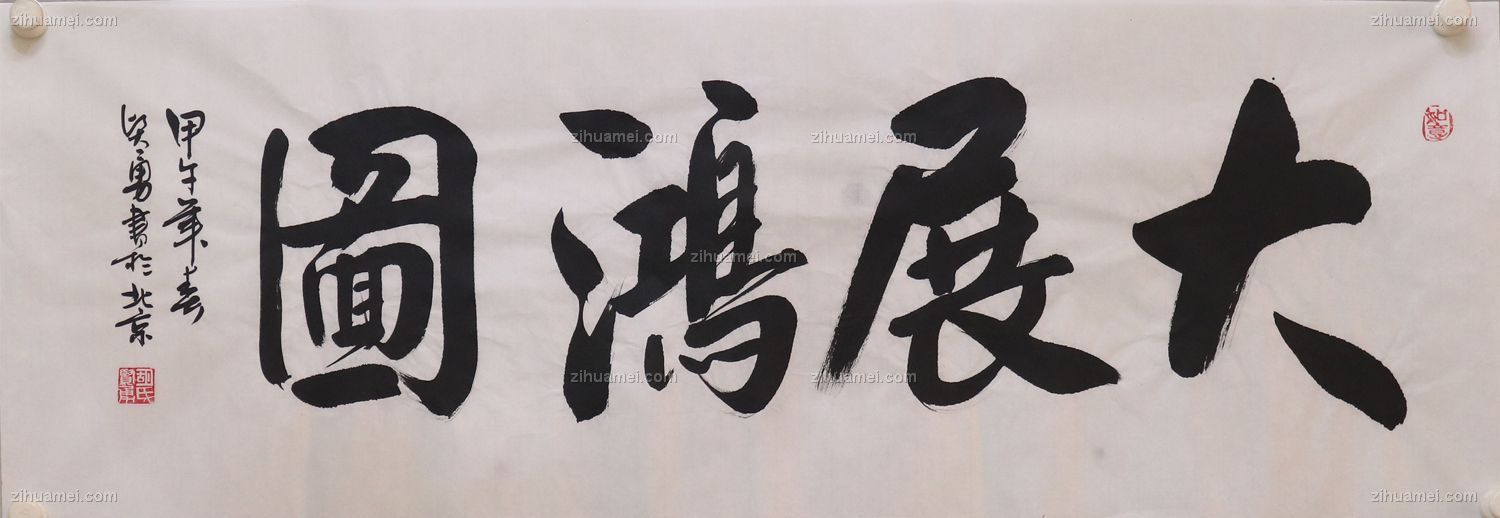 大展鴻圖
甲午年春
贤勇書於北京
如意
邵氏賢勇
zihuamei.com
zihuamei.com
zihuamei.com
zihuamei.com
zihuamei.com
zihuamei.com
zihuamei.com
zihuamei.com
zihuamei.com